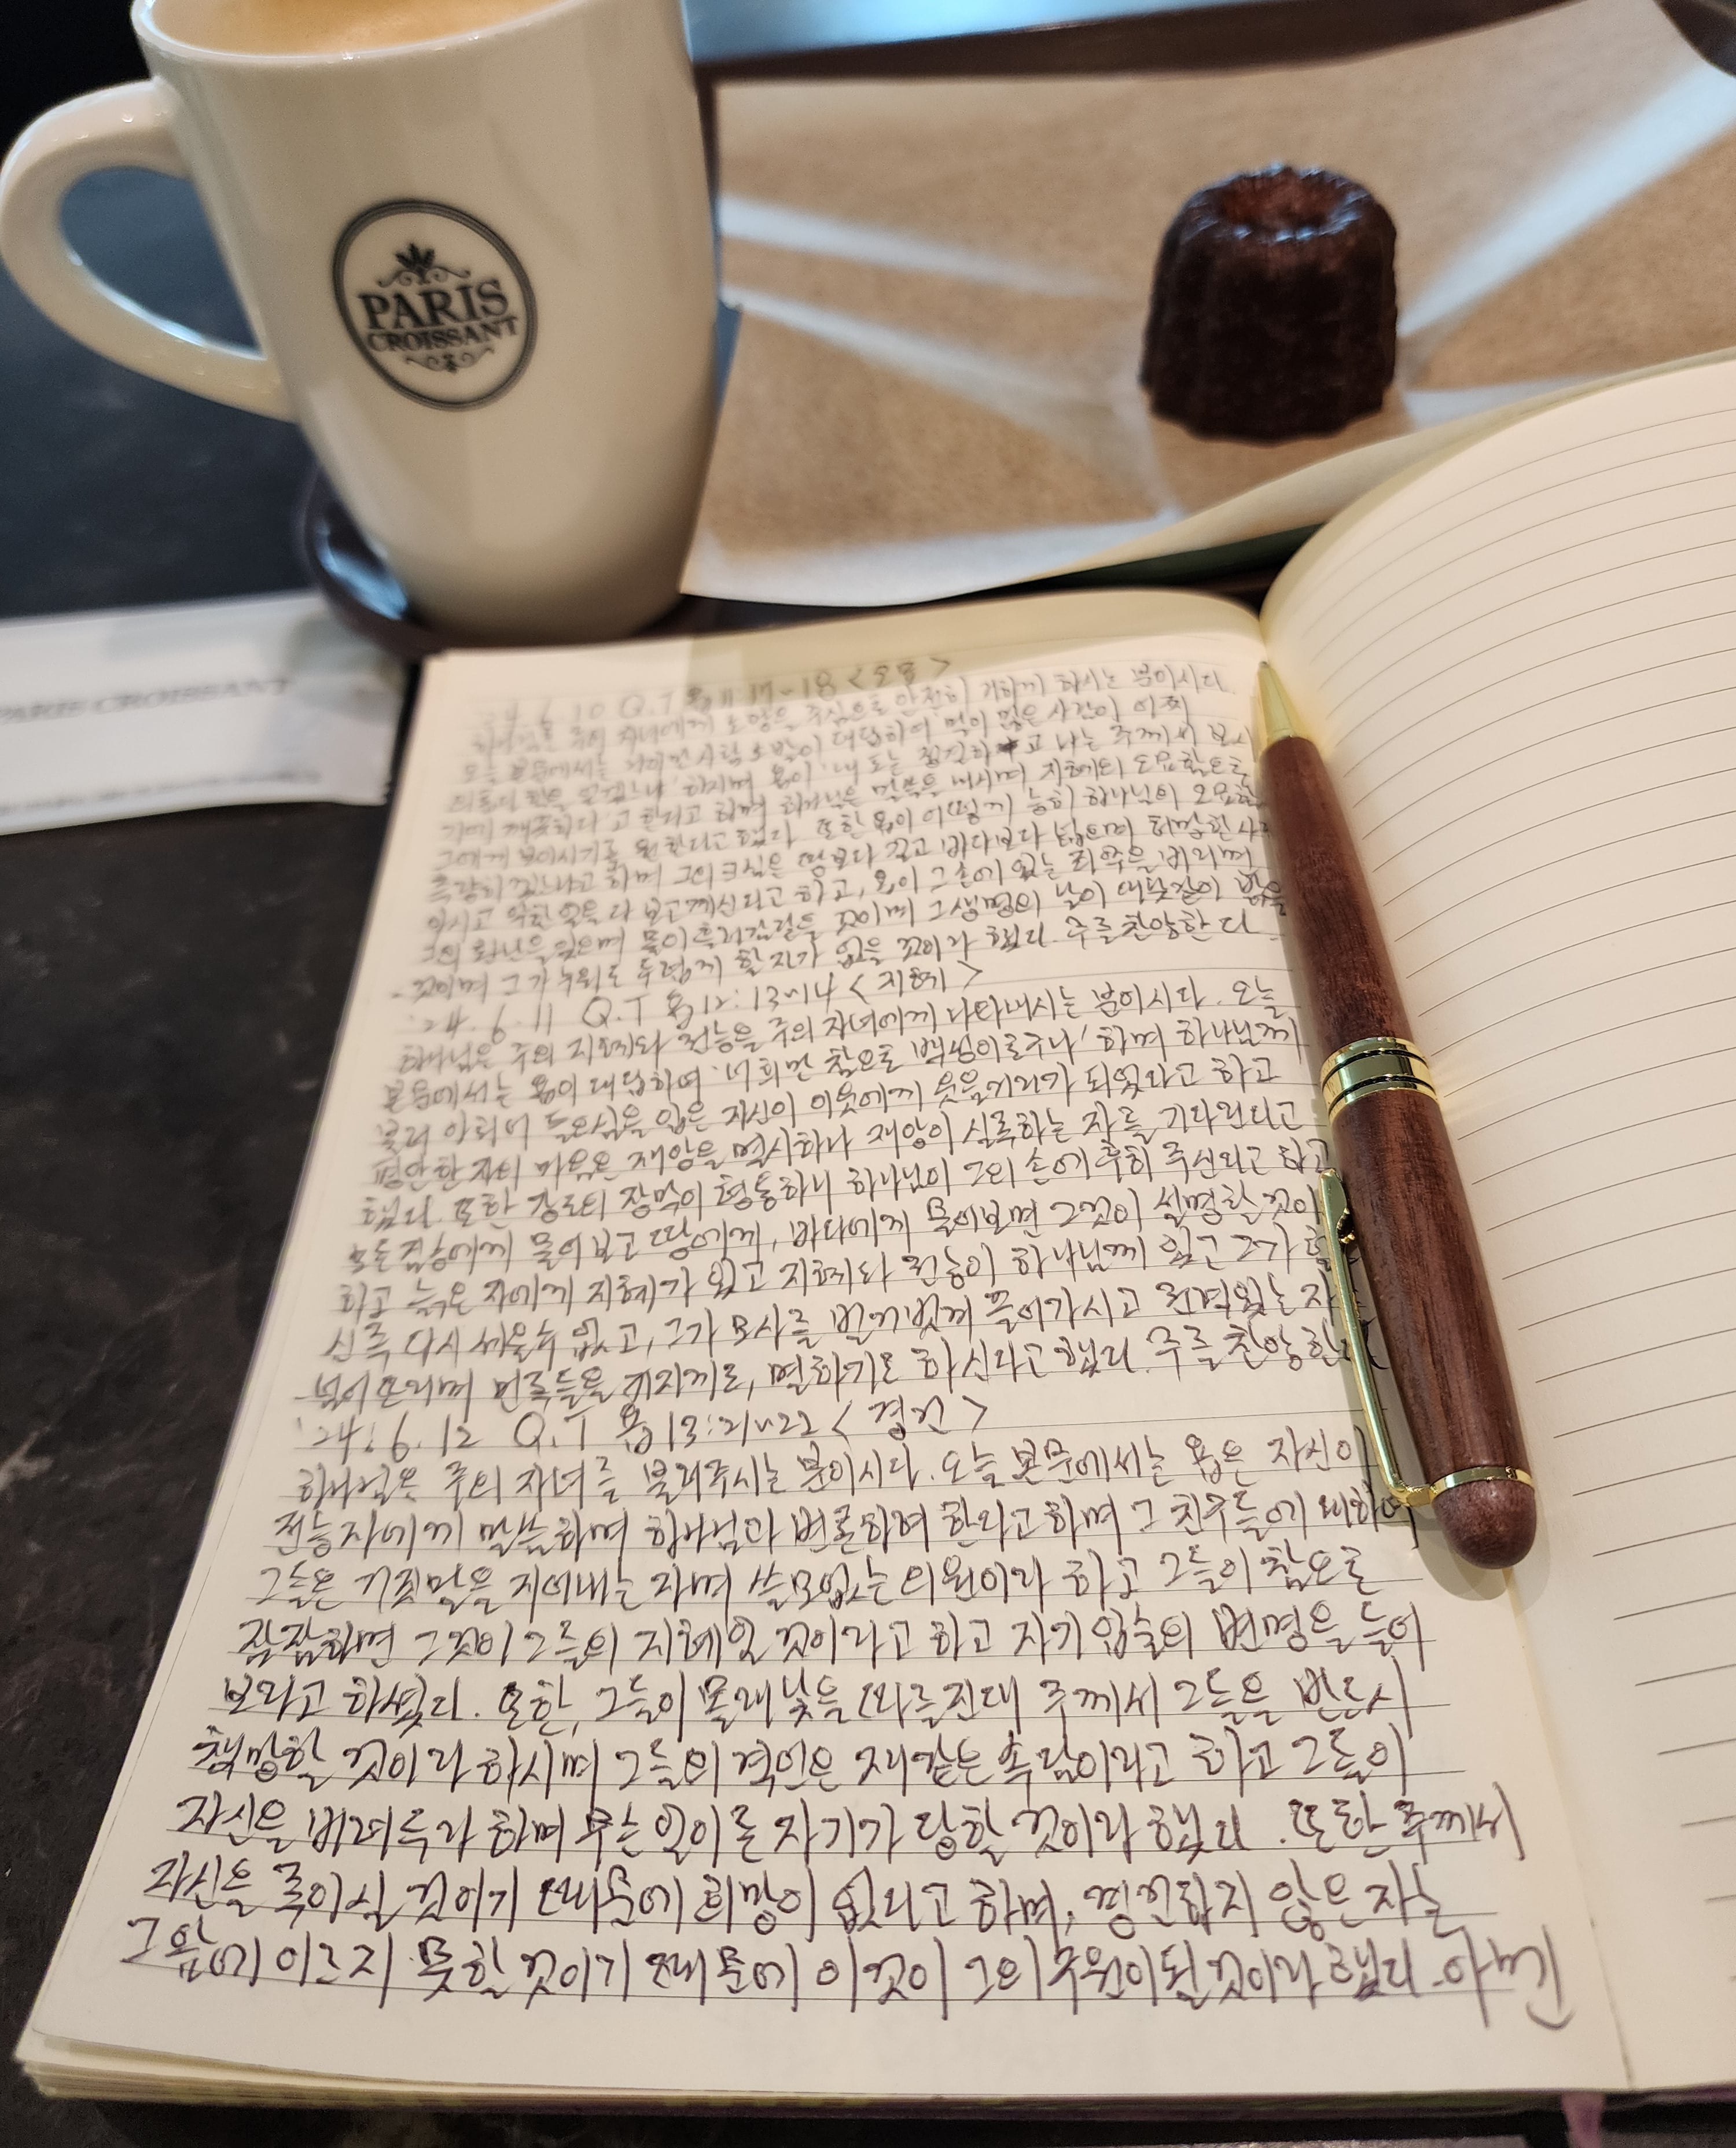 PARIS
CROISSANT
PARIS CROISSANT
24. 6. 10 Q.T 욥 11:17-18
하나님은 주의 자녀에게 소망을 주심으로 안전히 거하게 하시는 분이시다.
오늘 본문에서는 사람 소발이 대답하여 말이 많은 사람이 어찌
의롭다 함을 얻겠느냐 하며 욥이 내 도는 정결하고 나는 주께서 보시
기에 깨끗하다고 한다고 하며 하나님은 말씀을 내시며 지혜의 오묘함으로
그에게 보이시기를 원한다고 했다. 또한 욥이 어떻게 능히 하나님의 오묘함
측량하겠느냐고 하며 그의 크심은 땅보다 길고 바다보다 넓으며 허망한 사
아시고 악한 일을 다 보고 계신다고 하고, 욥이 그 손에 있는 죄악을 버리며
그의 환난을 잊으며 물이 흘러감같을 것이며 그 생명의 날이 대낮같이 밝을
것이며 그가 누워도 두렵게 할 자가 없을 것이라 했다. 주를 찬양한다
'24. 6. 11 Q.T 욥 12:13~14 <지혜>
하나님은 주의 지혜와 권능을 주의 자녀에게 나타내시는 분이시다. 오늘
본문에서는 욥이 대답하여 '너희만 참으로 백성이로구나' 하며 하나님께
불러 아뢰어 들으심을 입은 자신이 이웃에게 웃음거리가 되었다고 하고
평안한 자의 마음은 재앙을 멸시하나 재앙이 실족하는 자를 기다린다고
했다. 또한 강도의 장막이 형통하니 하나님이 그의 손에 후히 주신다고 하고
모든 짐승에게 물어 보고 땅에게, 바다에게 물어보면 그것이 설명할 것이
하고 늙은 자에게 지혜가 있고 지혜와 권능이 하나님께 있고 그가
신즉 다시 세울 수 없고, 그가 모사를 벌거벗겨 끌어가시고 권력있는 자
넘어뜨리며 민족들을 커지게도, 멸하기도 하신다고 했다. 주를 찬양한
'24. 6. 12 Q.T 욥 13:21~22 <경건>
하나님은 주의 자녀를 불러주시는 분이시다. 오늘 본문에서는 욥은 자신이
전능자에게 말씀하며 하나님과 변론하려 한다고 하며 그 친구들에 대하여
그들은 거짓말을 지어내는 자며 쓸모없는 의원이라 하고 그들이 참으로
잠잠하면 그것이 그들의 지혜일 것이라고 하고 자기 입술의 변명을 들어
보라고 하였다. 또한, 그들이 몰래 낯을 따를진대 주께서 그들을 반드시
책망할 것이라 하시며 그들의 격언은 재같은 속담이라고 하고 그들이
자신을 버려두라 하며 무슨 일이든 자기가 당할 것이라 했다. 또한 주께서
자신을 죽이실 것이기 때문에 희망이 없다고 하며, 경건하지 않은 자는
그 앞에 이르지 못할 것이기 때문에 이것이 그의 구원이 될 것이라 했다. 아멘